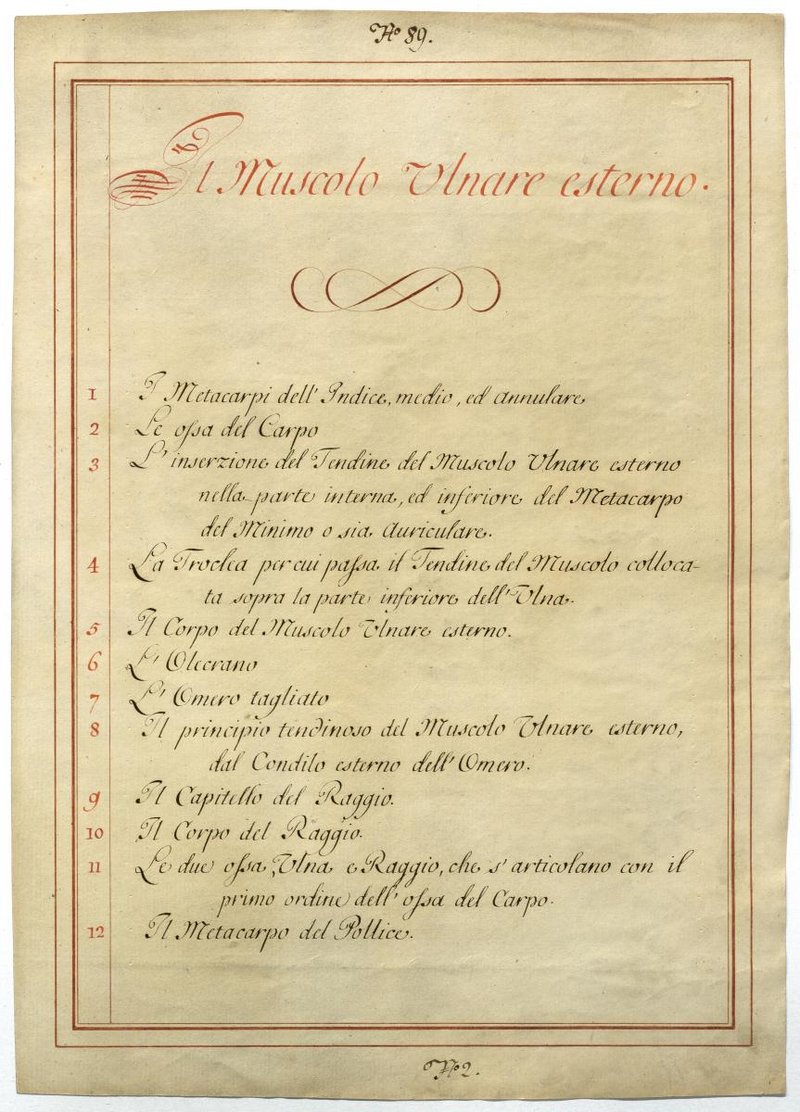 No 89.
Il Muscolo Vlnare esterno.
1 I Metacarpi dell' Indice, medio, ed annulare
2 Le ossa del Carpo
3 L' inserzione del Tendine del Muscolo Vlnare esterno
nella parte interna, ed inferiore del Metacarpo
del Minimo o sia auriculare.
4 La Troclea per cui passa il Tendine del Muscolo colloca-
ta sopra la parte inferiore dell' Vlna.
5 Il Corpo del Muscolo Vlnare esterno.
6 L' Olecrano
7 L' Omero tagliato
8 Il principio tendinoso del Muscolo Vlnare esterno,
dal Condilo esterno dell' Omero.
9 Il Capitello del Raggio.
10 Il Corpo del Raggio.
11 Le due ossa, Vlna e Raggio, che s' articolano con il
primo ordine dell' ossa del Carpo.
12 Il Metacarpo del Pollice.
No 2.